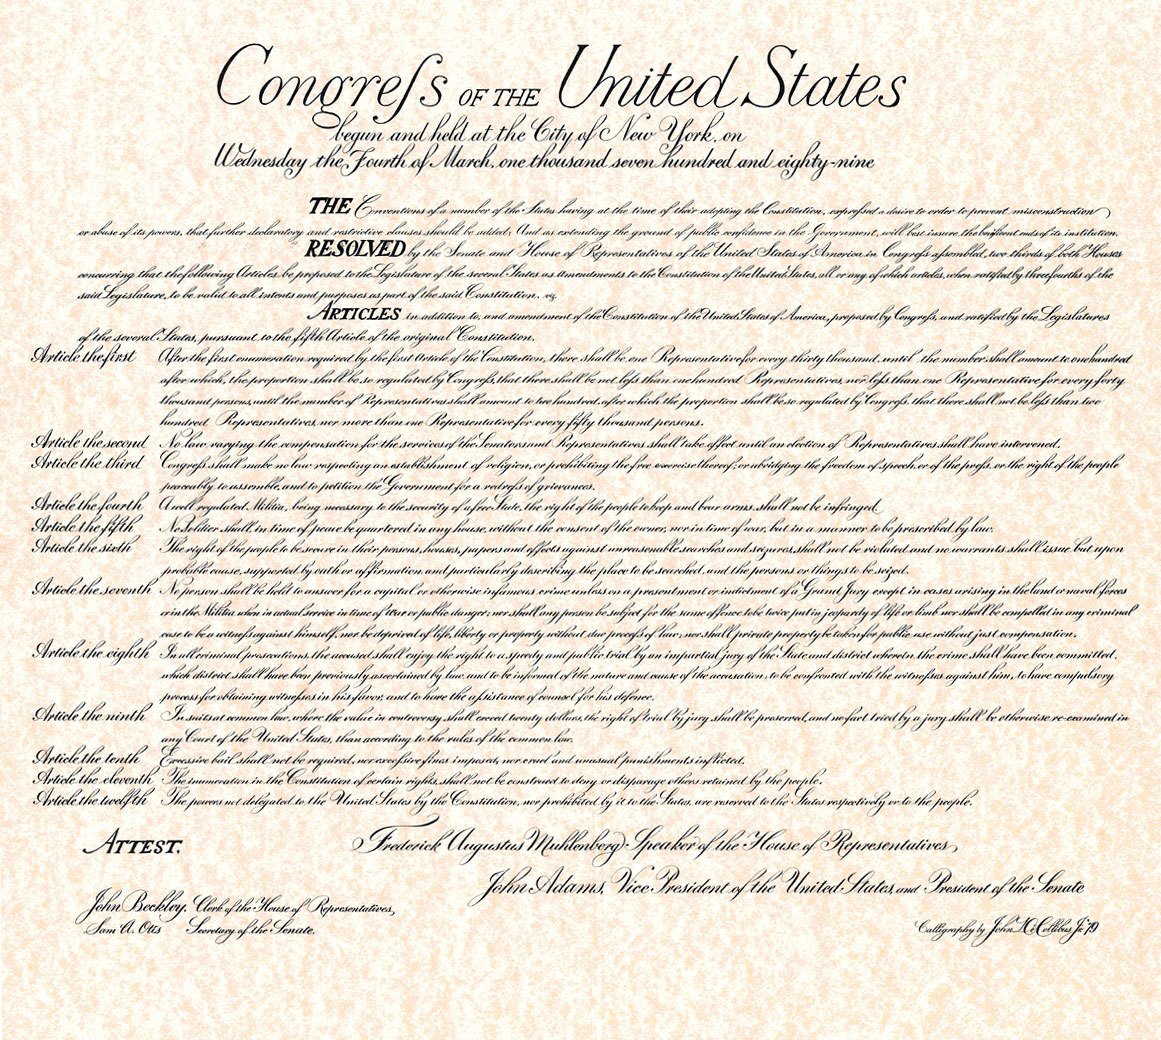 Congreſs OF THE United States
begun and held at the City of New York, on
Wednesday the Fourth of March, one thousand seven hundred and eighty-nine
THE Conventions of a number of the States having at the time of their adopting the Constitution, expreſsed a desire to order to prevent misconstruction
or abuse of its powers, that further declaratory and restrictive clauses should be added; And as extending the ground of public confidence in the Government, will best insure the ends of its institution.
RESOLVED by the Senate and House of Representatives of the United States of America in Congreſs aſsembled, two thirds of both Houses
concurring that the following Articles, be proposed to the Legislature of the several States as amendments to the Constitution of the United States, all or any of which articles, when ratified by three fourths of the
said Legislature, to be valid to all intents and purposes as part of the said Constitution. viz.
ARTICLES in addition to, and amendment of the Constitution of the United States of America, proposed by Congreſs, and ratified by the Legislatures
of the several States, pursuant to the fifth Article of the original Constitution.
Article the first After the first enumeration required by the first Article of the Constitution, there shall be one Representative for every thirty thousand, until the number shall amount to one hundred
after which, the proportion shall be so regulated by Congreſs, that there shall be not leſs than one hundred Representatives, nor leſs than one Representative for every forty
thousand persons, until the number of Representatives shall amount to two hundred, after which the proportion shall be so regulated by Congreſs, that there shall not be leſs than two
hundred Representatives, nor more than one Representative for every fifty thousand persons.
Article the second No law varying the compensation for the services of the Senators and Representatives, shall take effect until an election of Representatives shall have intervened.
Article the third Congreſs shall make no law respecting an establishment of religion, or prohibiting the free exercise thereof; or abridging the freedom of speech, or of the preſs, or the right of the people
peaceably to aſsemble, and to petition the Government for a redreſs of grievances.
Article the fourth A well regulated Militia, being necessary to the security of a free State, the right of the people to keep and bear arms, shall not be infringed.
Article the fifth No Soldier shall in time of peace be quartered in any house, without the consent of the owner, nor in time of war, but in a manner to be prescribed by law.
Article the sixth The right of the people to be secure in their persons, houses, papers and effects against unreasonable searches and seizures, shall not be violated and no warrants shall issue but upon
probable cause, supported by oath or affirmation and particularly describing the place to be searched, and the persons or things to be seized.
Article the seventh No person shall be held to answer for a capital or otherwise infamous crime unless on a presentment or indictment of a Grand Jury except in cases arising in the land or naval forces
or in the Militia when in actual service in time of War or public danger; nor shall any person be subject for the same offence to be twice put in jeopardy of life or limb nor shall be compelled in any criminal
case to be a witneſs against himself, nor be deprived of life, liberty or property without due proceſs of law; nor shall private property be taken for public use without just compensation.
Article the eighth In all criminal prosecutions, the accused shall enjoy the right to a speedy and public trial by an impartial jury of the State and district wherein the crime shall have been committed,
which district shall have been previously ascertained by law, and to be informed of the nature and cause of the accusation; to be confronted with the witneſses against him; to have compulsory
process for obtaining witneſses in his favor, and to have the aſsistance of counsel for his defence.
Article the ninth In suits at common law, where the value in controversy shall exceed twenty dollars, the right of trial by jury shall be preserved, and no fact tried by a jury shall be otherwise re-examined in
any Court of the United States, than according to the rules of the common law.
Article the tenth Excessive bail shall not be required, nor excessive fines imposed, nor cruel and unusual punishments inflicted.
Article the eleventh The inumeration in the Constitution of certain rights, shall not be construed to deny or disparage others retained by the people.
Article the twelfth The powers not delegated to the United States by the Constitution, nor prohibited by it to the States, are reserved to the States respectively or to the people.
ATTEST. Frederick Augustus Muhlenberg Speaker of the House of Representatives,
John Adams, Vice President of the United States, and President of the Senate
John Beckley, Clerk of the House of Representatives,
Sam A. Otis Secretary of the Senate.
Calligraphy by John Jr '79